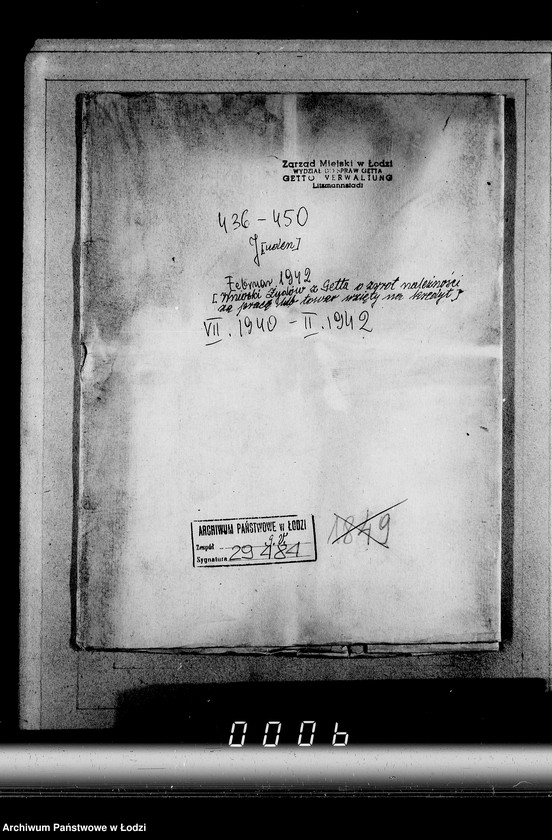 Zarząd Miejski w Łodzi
WYDZIAŁ DO SPRAW GETTA
GETTO VERWALTUNG
Litzmannstadt
436 – 450
J[uden]
Februar 1942
[Wnioski Żydów z Getta o zwrot należności
za pracę lub towar wzięty na kredyt]
VII. 1940 – II. 1942
ARCHIWUM PAŃSTWOWE w ŁODZI
Zespół
Sygnatura 29484
1849
0006
Archiwum Państwowe w Łodzi